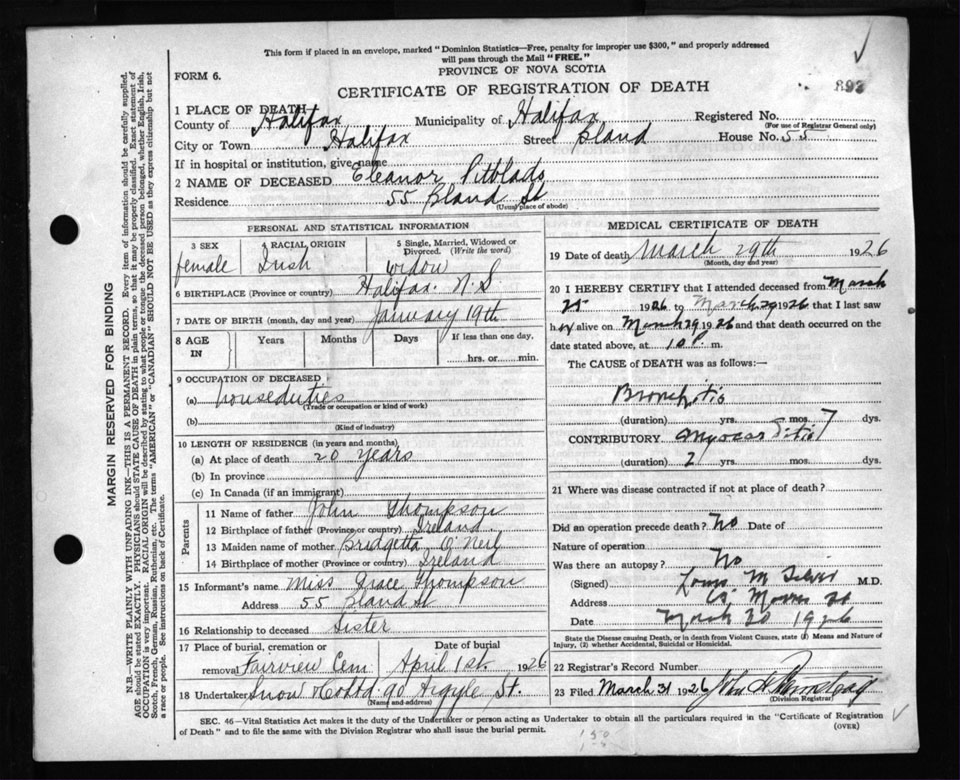 This form if placed in an envelope, marked "Dominion Statistics—Free, penalty for improper use $300," and properly addressed
will pass through the Mail "FREE."
FORM 6.
PROVINCE OF NOVA SCOTIA
CERTIFICATE OF REGISTRATION OF DEATH
893
1 PLACE OF DEATH
County of Halifax Municipality of Halifax Registered No.
(For use of Registrar General only)
City or Town Halifax Street Bland House No. 55
If in hospital or institution, give name
2 NAME OF DECEASED Eleanor Pitblado
Residence 55 Bland St
(Usual place of abode)
PERSONAL AND STATISTICAL INFORMATION
3 SEX 4 RACIAL ORIGIN 5 Single, Married, Widowed or Divorced. (Write the word)
female Irish widow
6 BIRTHPLACE (Province or country) Halifax. N.S
7 DATE OF BIRTH (month, day and year) January 19th
8 AGE IN Years Months Days If less than one day,
hrs. or min.
9 OCCUPATION OF DECEASED
(a) houseduties
(Trade or occupation or kind of work)
(b)
(Kind of industry)
10 LENGTH OF RESIDENCE (in years and months)
(a) At place of death 20 years
(b) In province
(c) In Canada (if an immigrant)
Parents
11 Name of father John Thompson
12 Birthplace of father (Province or country) Ireland
13 Maiden name of mother Bridgetta O'Neil
14 Birthplace of mother (Province or country) Ireland
15 Informant's name Miss Grace Thompson
Address 55 Bland St
16 Relationship to deceased Sister
17 Place of burial, cremation or Date of burial
removal Fairview Cem April 1st 1926
18 Undertaker Snow & Co Ltd. 90 Argyle St.
(Name and address)
MEDICAL CERTIFICATE OF DEATH
19 Date of death March 29th 1926
(Month, day and year)
20 I HEREBY CERTIFY that I attended deceased from March
1926 to March 29 1926 that I last saw
her alive on March 29 1926 and that death occurred on the
date stated above, at 10 P. m.
The CAUSE of DEATH was as follows:—
Bronchitis
(duration) yrs. mos. 7 dys.
CONTRIBUTORY Myocarditis
(duration) 2 yrs. mos. dys.
21 Where was disease contracted if not at place of death?
Did an operation precede death? No Date of
Nature of operation
Was there an autopsy? No
(Signed) Louis M Silver M.D.
Address Morris St
Date March 30 1926
State the Disease causing Death, or in death from Violent Causes, state (1) Means and Nature of
Injury, (2) whether Accidental, Suicidal or Homicidal.
22 Registrar's Record Number
23 Filed March 31 1926 John
(Division Registrar)
SEC. 46—Vital Statistics Act makes it the duty of the Undertaker or person acting as Undertaker to obtain all the particulars required in the "Certificate of Registration
of Death" and to file the same with the Division Registrar who shall issue the burial permit.
(OVER)
MARGIN RESERVED FOR BINDING
N.B.—WRITE PLAINLY WITH UNFADING INK—THIS IS A PERMANENT RECORD. Every item of information should be carefully supplied.
AGE should be stated EXACTLY. PHYSICIANS should STATE CAUSE OF DEATH in plain terms, so that it may be properly classified. Exact statement of
OCCUPATION is very important. RACIAL ORIGIN will be described by stating to what people or tongue the deceased person belonged, whether English, Irish,
Scotch, French, German, Russian, Ruthenian, etc. The terms "AMERICAN" or "CANADIAN" SHOULD NOT BE USED as they express citizenship but not
a race or people. See instructions on back of Certificate.